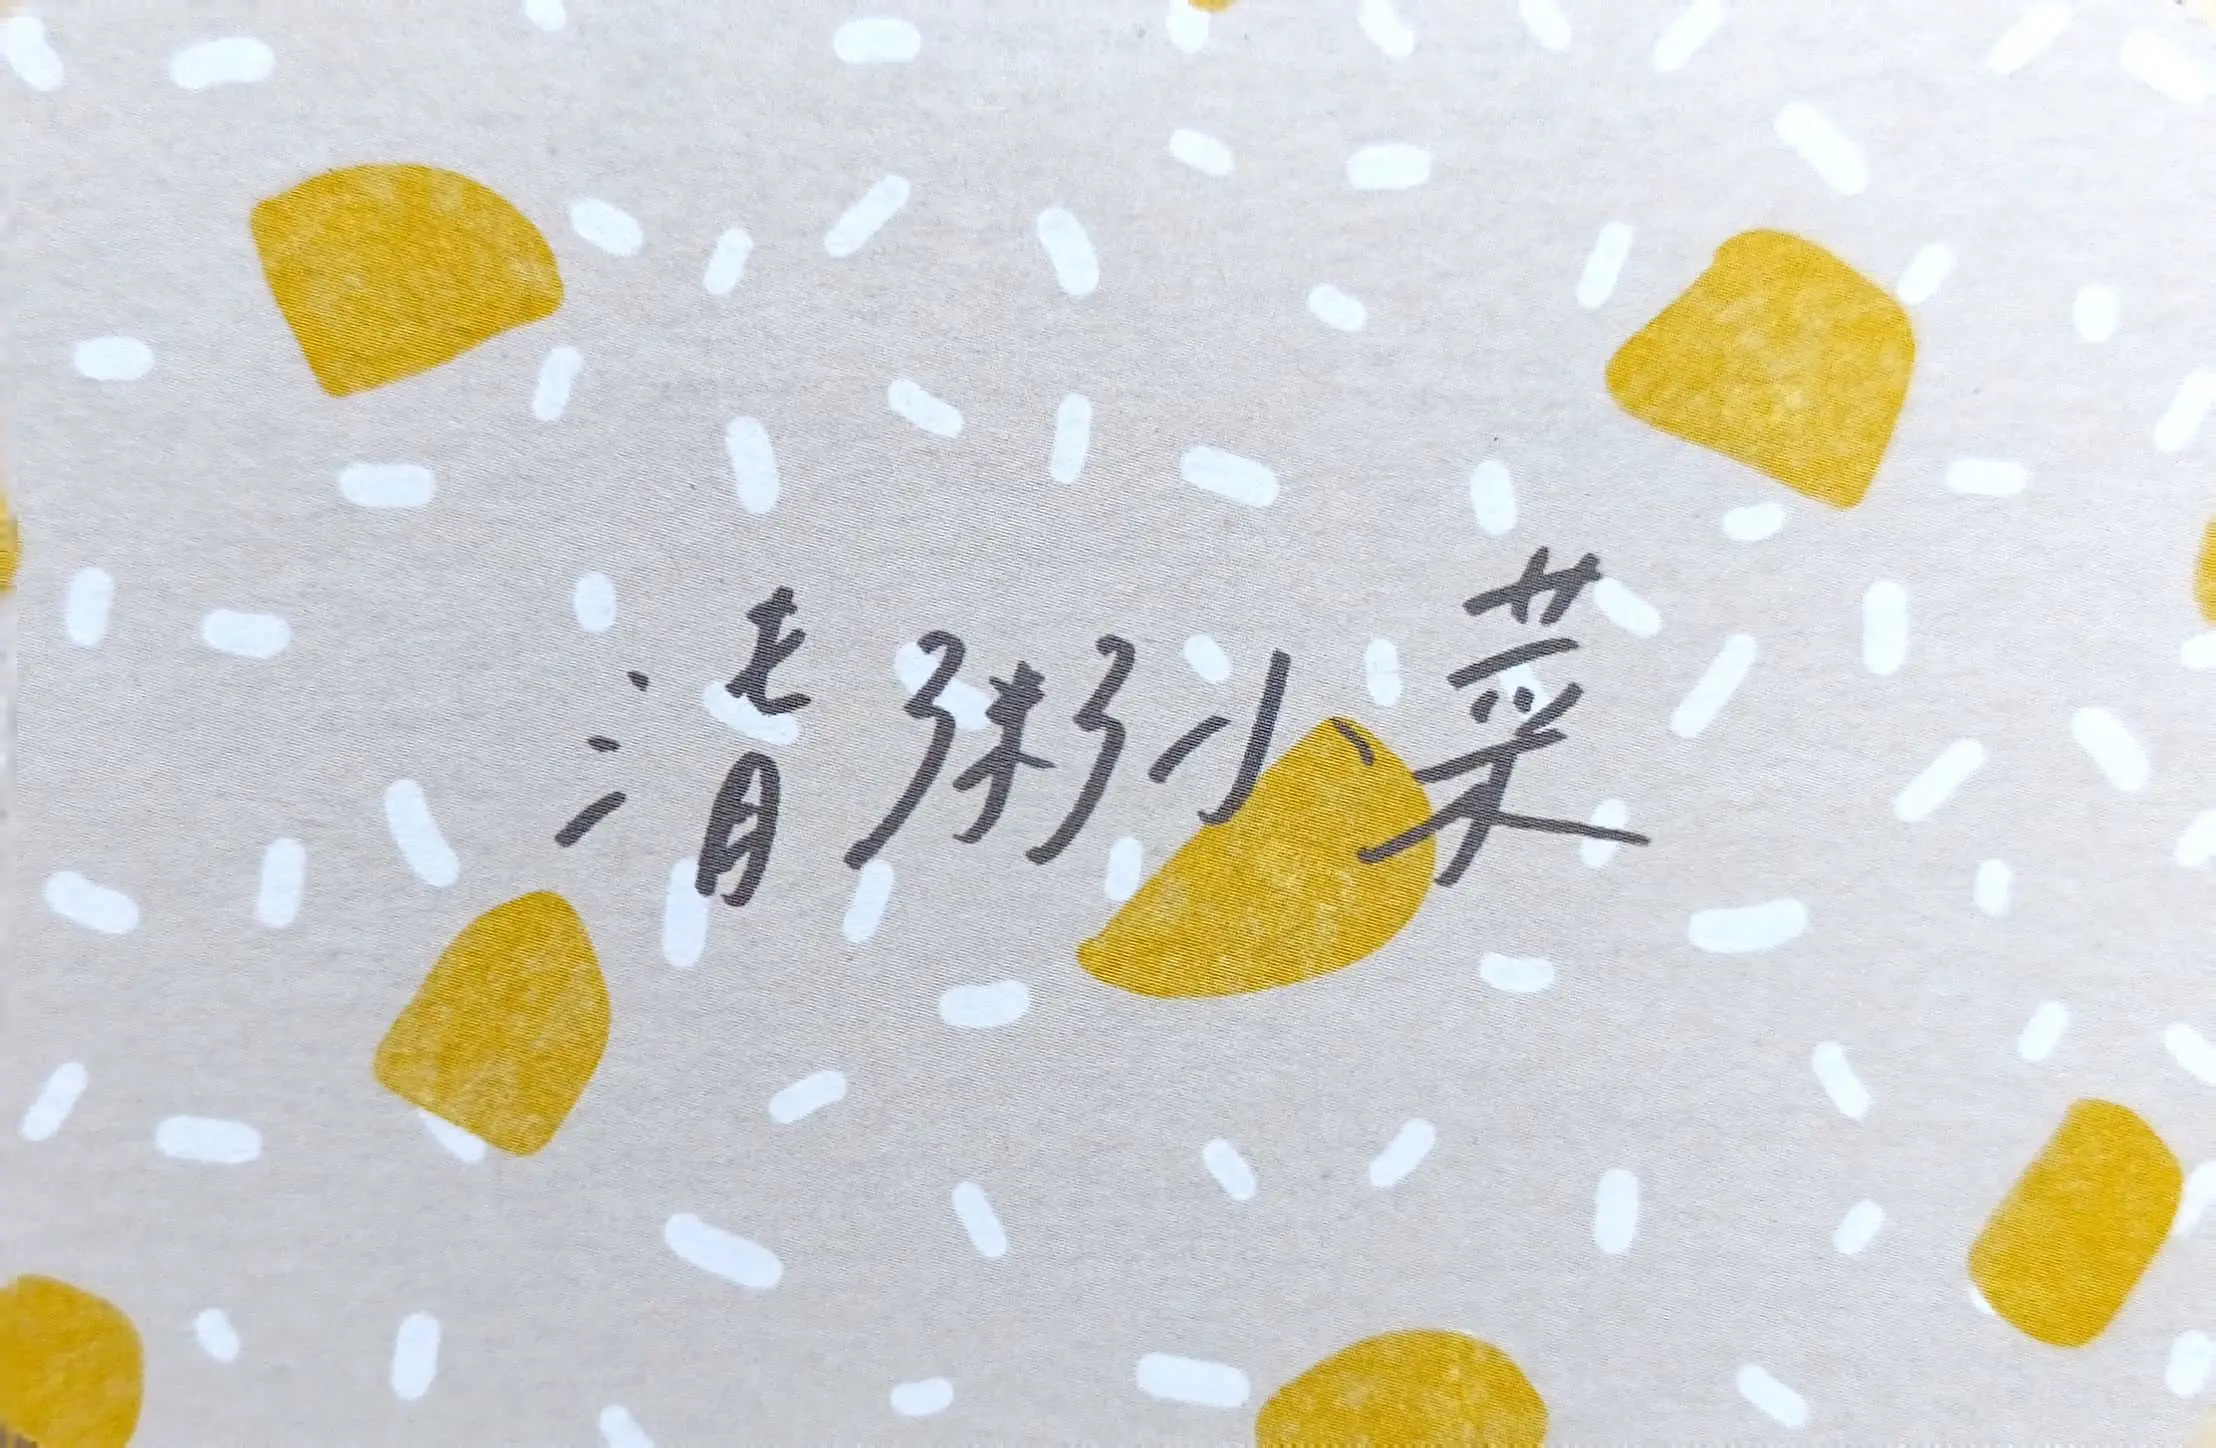 清粥小菜